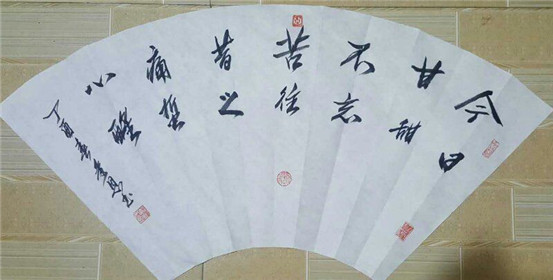 今日
甘甜
不忘
苦往
昔之
痛
心醒
丁酉春书